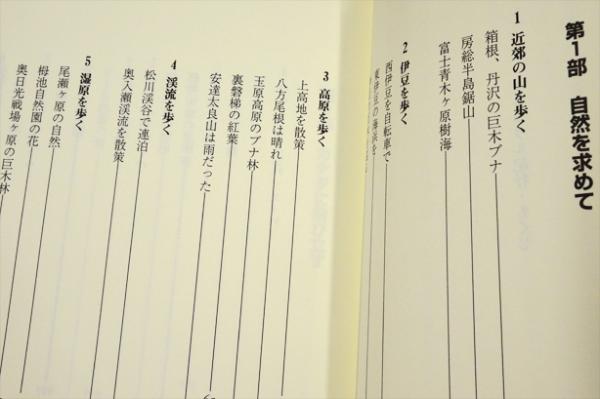 第1部 自然を求めて
1 近郊の山を歩く
箱根、丹沢の巨木ブナ
房総半島鋸山
富士青木ヶ原樹海
2 伊豆を歩く
西伊豆を自転車で
東伊豆の海浜を
3 高原を歩く
上高地を散策
八方尾根は晴れ
玉原高原のブナ林
裏磐梯の紅葉
安達太良山は雨だった
4 渓流を歩く
松川渓谷で連泊
奥入瀬渓流を散策
5 湿原を歩く
尾瀬ヶ原の自然
栂池自然園の花
奥日光戦場ヶ原の巨木林